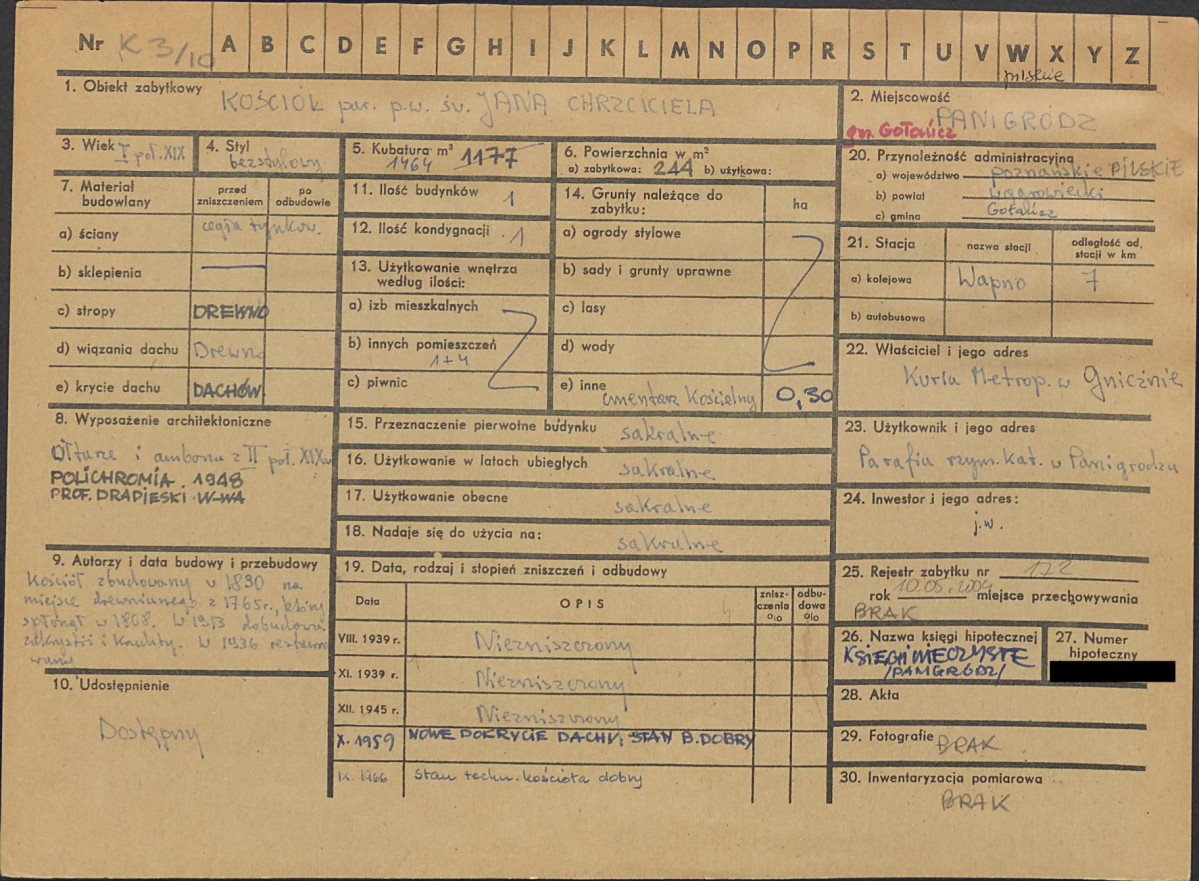 Nr K 3/10 A B C D E F G H I J K L M N O P R S T U V W X Y Z
pilskie
1. Obiekt zabytkowy KOŚCIÓŁ par. p.w. św. JANA CHRZCICIELA
2. Miejscowość
PANIGRÓDZ
gm. Gołańcz
3. Wiek I poł. XIX
4. Styl
bezstylowy
5. Kubatura m³ 1177
1464
6. Powierzchnia w m²
a) zabytkowa: 244 b) użytkowa:
7. Materiał budowlany
przed zniszczeniem
po odbudowie
a) ściany cegła tynkow.
b) sklepienia —
c) stropy DREWNO
d) wiązania dachu Drewno
e) krycie dachu DACHÓW.
8. Wyposażenie architektoniczne
Ołtarze i ambona z II poł. XIX w
POLICHROMIA. 1948
PROF. DRAPIESKI W-WA
9. Autorzy i data budowy i przebudowy
Kościół zbudowany w 1830 na
miejsce drewnianego z 1765r., który
spłonął w 1808. W 1913 dobudowa
zakrystii i kruchty. W 1936
10. Udostępnienie
Dostępny
11. Ilość budynków 1
12. Ilość kondygnacji 1
13. Użytkowanie wnętrza
według ilości:
a) izb mieszkalnych
b) innych pomieszczeń
1+4
c) piwnic
14. Grunty należące do
zabytku:
ha
a) ogrody stylowe
b) sady i grunty uprawne
c) lasy
d) wody
e) inne
cmentarz Kościelny 0,30
15. Przeznaczenie pierwotne budynku sakralne
16. Użytkowanie w latach ubiegłych sakralne
17. Użytkowanie obecne sakralne
18. Nadaje się do użycia na: sakralne
19. Data, rodzaj i stopień zniszczeń i odbudowy
Data OPIS znisz-czenia o|o odbu-dowa o|o
VIII. 1939 r. Niezniszczony
XI. 1939 r. Niezniszczony
XII. 1945 r. Niezniszczony
X. 1959 NOWE POKRYCIE DACHU, STAN B. DOBRY
IX. 1966 stan techn. kościoła dobry
20. Przynależność administracyjna
a) województwo poznańskie PILSKIE
b) powiat wągrowiecki
c) gmina Gołańcz
21. Stacja
nazwa stacji
odległość od stacji w km
a) kolejowa Wapno 7
b) autobusowa
22. Właściciel i jego adres
Kuria Metrop. w Gnieźnie
23. Użytkownik i jego adres
Parafia rzym. kat. w Panigrodzu
24. Inwestor i jego adres:
j.w.
25. Rejestr zabytku nr 172
rok 10.05.2004 miejsce przechowywania
BRAK
26. Nazwa księgi hipotecznej
KSIĘGI WIECZYSTE
/PANIGRÓDZ/
27. Numer
hipoteczny
28. Akta
29. Fotografie BRAK
30. Inwentaryzacja pomiarowa
BRAK